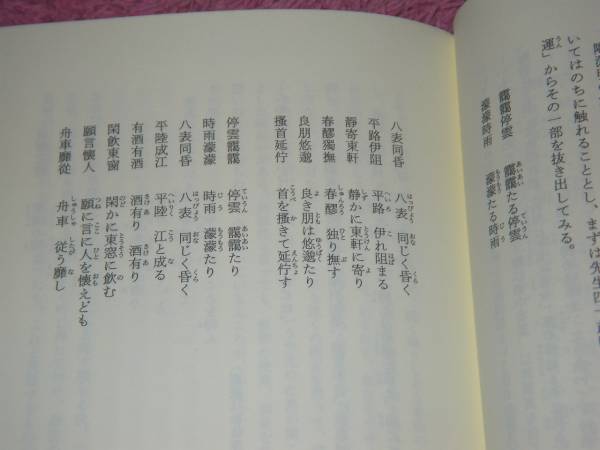 いてはのちに触れることとし、まずは先生四十
運」からその一部を抜き出してみる。
靄靄停雲　靄靄たる停雲
濛濛時雨　濛濛たる時雨
八表同昏　八表　同じく昏く
平路伊阻　平路　伊れ阻まる
靜寄東軒　静かに東軒に寄り
春醪獨撫　春醪　独り撫す
良朋悠邈　良き朋は悠邈たり
搔首延佇　首を搔きて延佇す
停雲靄靄　停雲　靄靄たり
時雨濛濛　時雨　濛濛たり
八表同昏　八表　同じく昏く
平陸成江　平陸　江と成る
有酒有酒　酒有り　酒有り
閑飲東窗　閑かに東窓に飲む
願言懷人　願に言に人を懐えども
舟車靡從　舟車　従う靡し